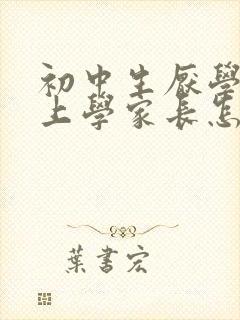 初中生厭學
上學家長怎
葉書宏